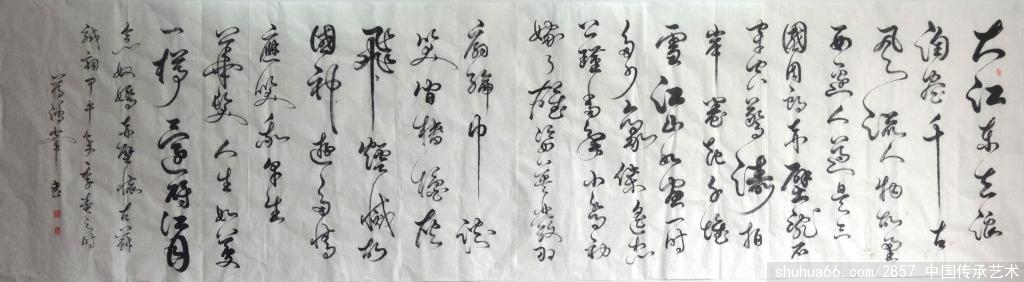 大江东去浪
淘尽千古
风流人物故垒
西边人道是三
國周郎赤壁乱石
穿空惊涛拍
岸卷起千堆
雪江山如画一时
多少豪杰遥想
公瑾当年小乔初
嫁了雄姿英发羽
扇纶巾谈
笑间樯橹灰
飛烟灭故
國神游多情
應笑我早生
華发人生如梦
一樽还酹江月
念奴嬌赤壁怀古蘇
轼词甲午年季春之时
书
shuhua66.com/2857 中国传承艺术